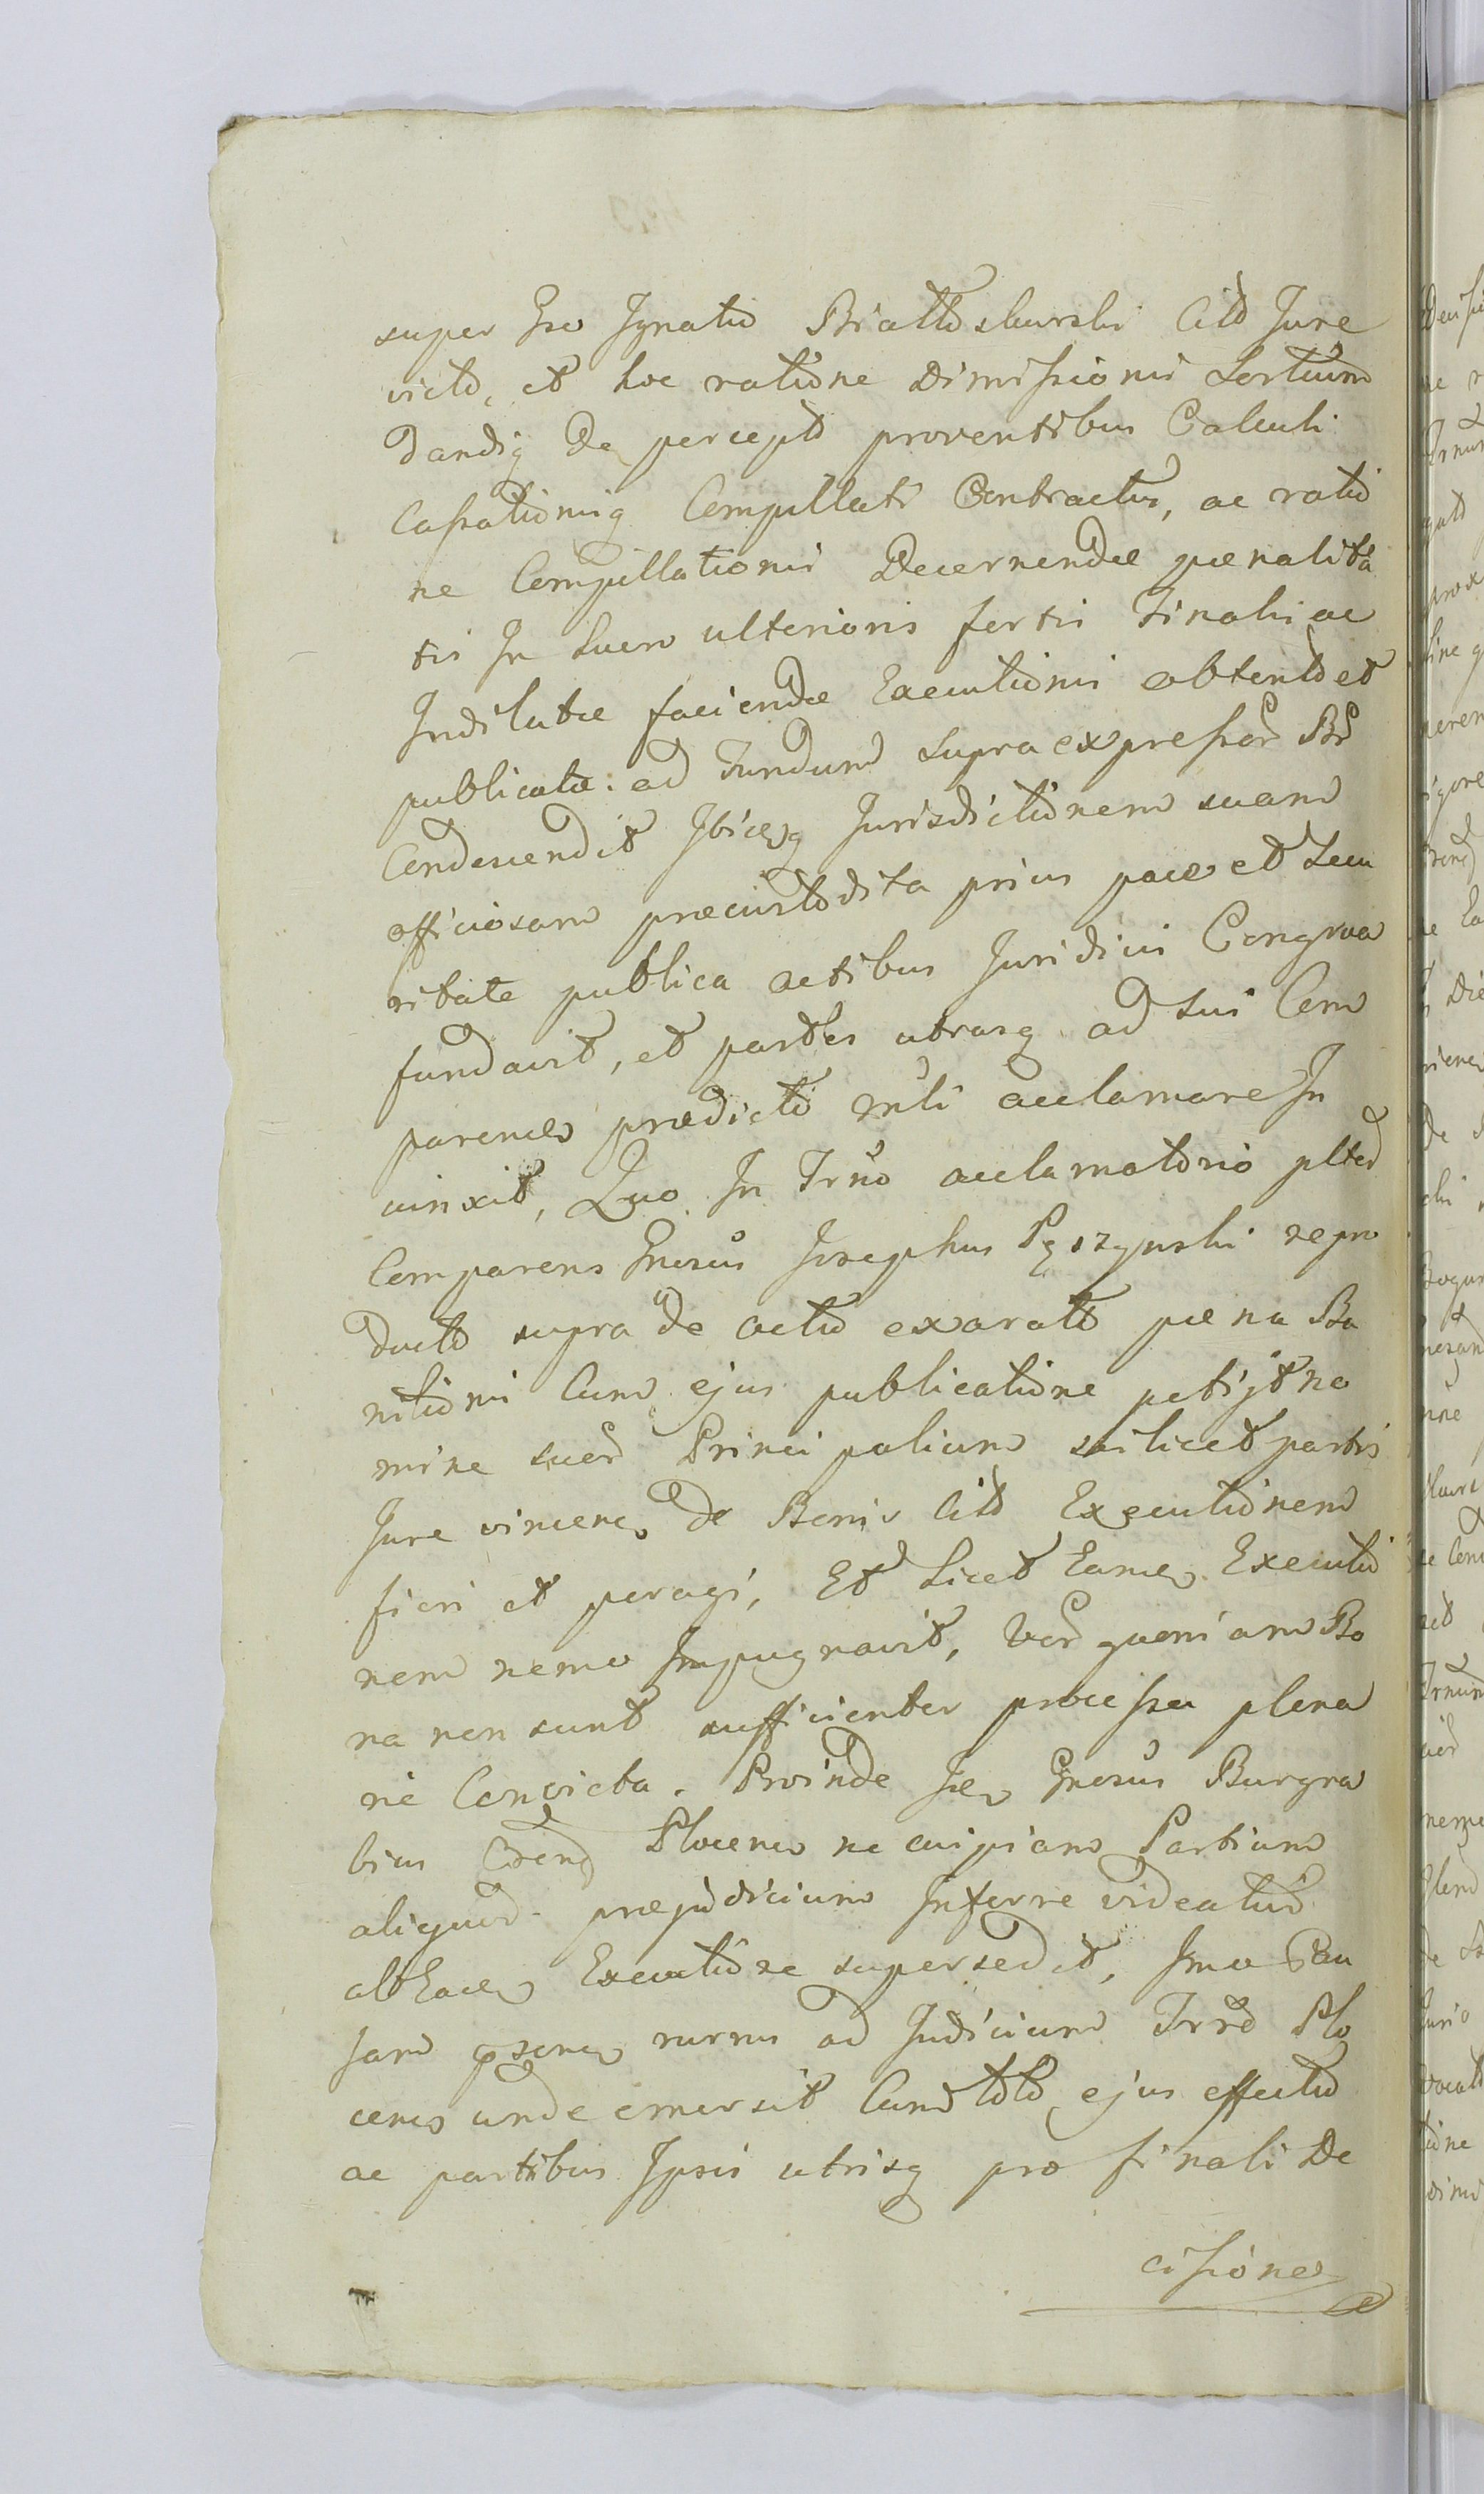 super Gso Ignatio Białłoskurski Citto Jure
victo, et hoc ratione Dimissionis Sortium
Dandiq De percepto proventibus Calculi
Cassationisq Compillati Contractus, ac ratio
ne Compillationis Decernendæ pœnalita
tis In Lucro ulterioris fortis Finalis ac
Indilatæ faciendæ Executionis obtento et
publicata: ad Fundum supra expressor Br
Condescendit Ibiq Jurisdictionem suam
officiosam præcustodita prius pace et Secu
ritate publica actibus Juridicis Congrua
fundavit, et partes utrasq ad sui Com
parenes prædicto mlti acclamare In
iunxit, Quo In Trno acclamatorio pltr
Comparens Gnosus Josephus Pęszyński repro
ducto supra de actu exarato pœna Ba
nitionis Cum ejus publicatione petijt no
mine suor Principalium scilicet partis
Jure vincene de Bonis Citto Executionem
fieri et peragi, Et Licet Eame Executio
nem nemo Impugnavit, Ver quoniam Bo
na non sunt sufficienter processu plena
rie Convicta. Proinde Gnosus Burgra
bius Plocene ne cuipiam Partium
aliquod præjudicium Inferre videatur
ab Hace Executione supersedit, Imo Cau
sam psene rursus ad Judicium Trre Plo
cens unde emersit Cum toto ejus effectu
ac partibus Ipsis utrisq pro finali De
cisione